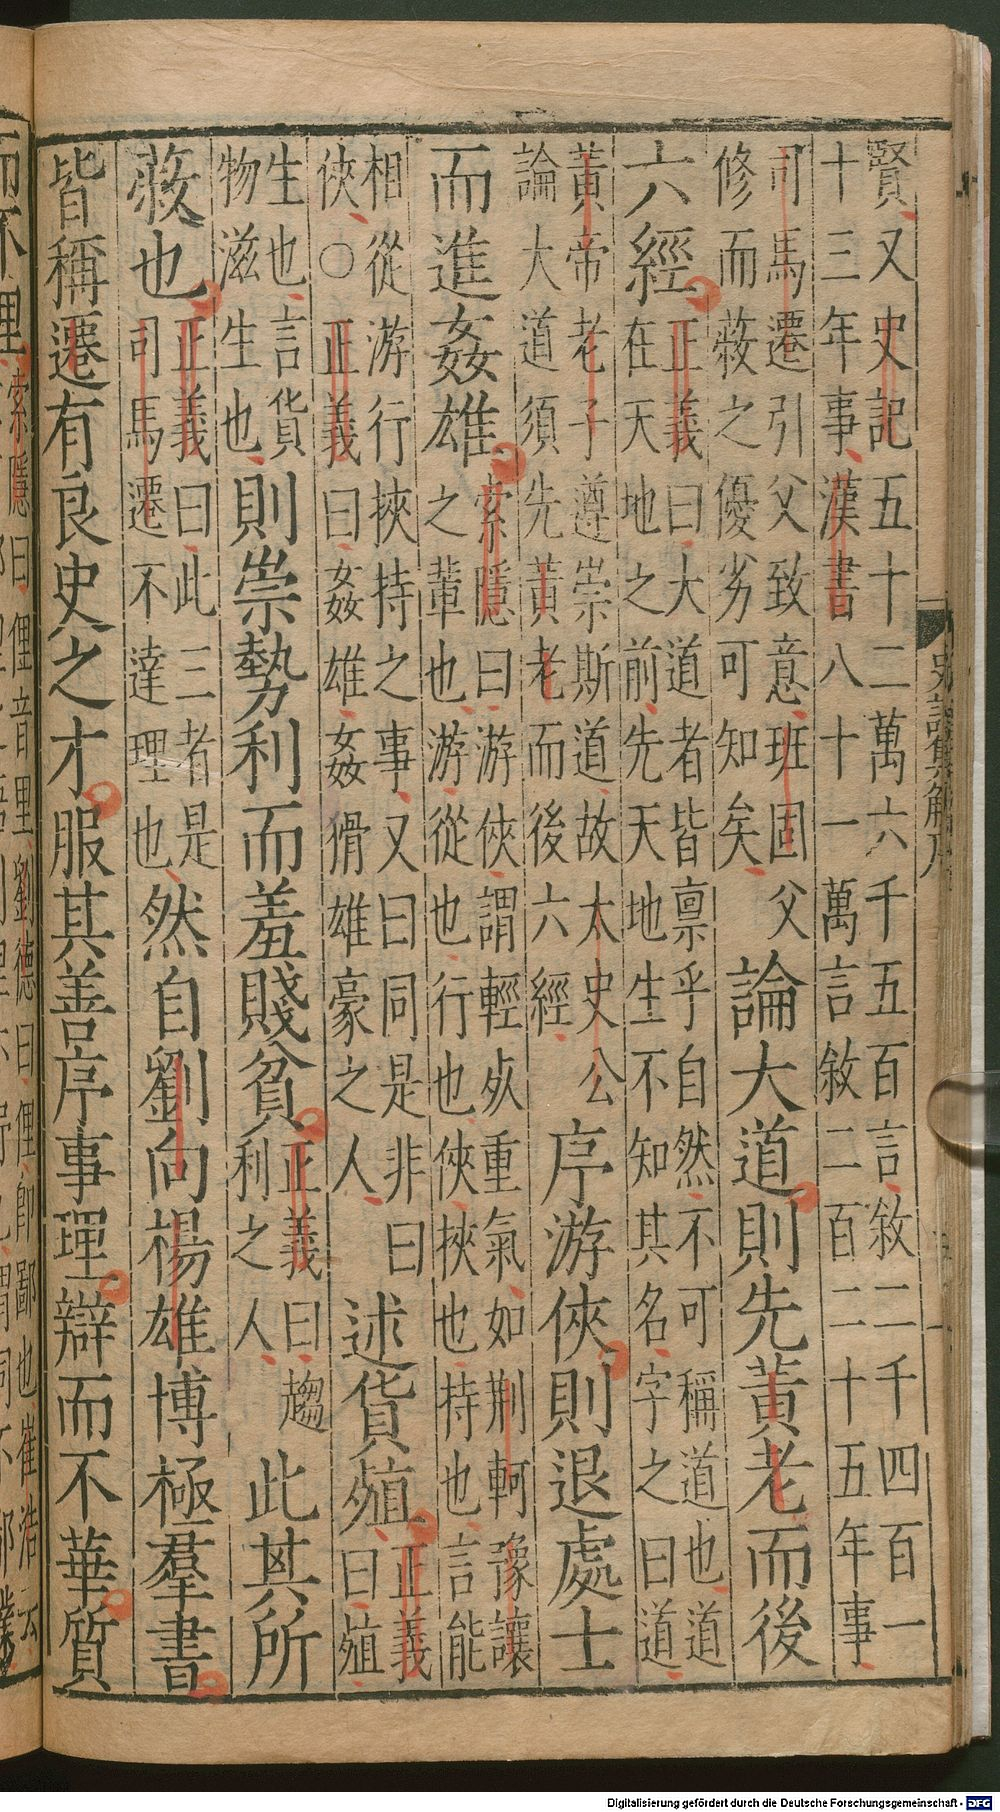 賢又史記五十二萬六千五百言敘二千四百一
十三年事漢書八十一萬言敘二百二十五年事
司馬遷引父致意班固父
修而蔽之優劣可知矣
論大道則先黃老而後
六經
正義曰大道者皆禀乎自然不可稱道也道
在天地之前先天地生不知其名字之曰道
黃帝老子遵崇斯道故太史公
論大道須先黃老而後六經
序游俠則退處士
而進姦雄
索隱曰游俠謂輕死重氣如荆軻豫讓
之輩也游從也行也俠挾也持也言能
相從游行挾持之事又曰同是非曰
俠○正義曰姦雄姦猾雄豪之人
述貨殖
正義
曰殖
生也言貨
物滋生也
則崇勢利而羞賤貧
正義曰趨
利之人
此其所
蔽也
正義曰此三者是
司馬遷不達理也
然自劉向楊雄博極羣書
皆稱遷有良史之才服其善序事理辯而不華質
史記集解序
而不俚
索隱曰俚音里劉德曰俚即鄙也崔浩云
Digitalisierung gefördert durch die Deutsche Forschungsgemeinschaft - DFG